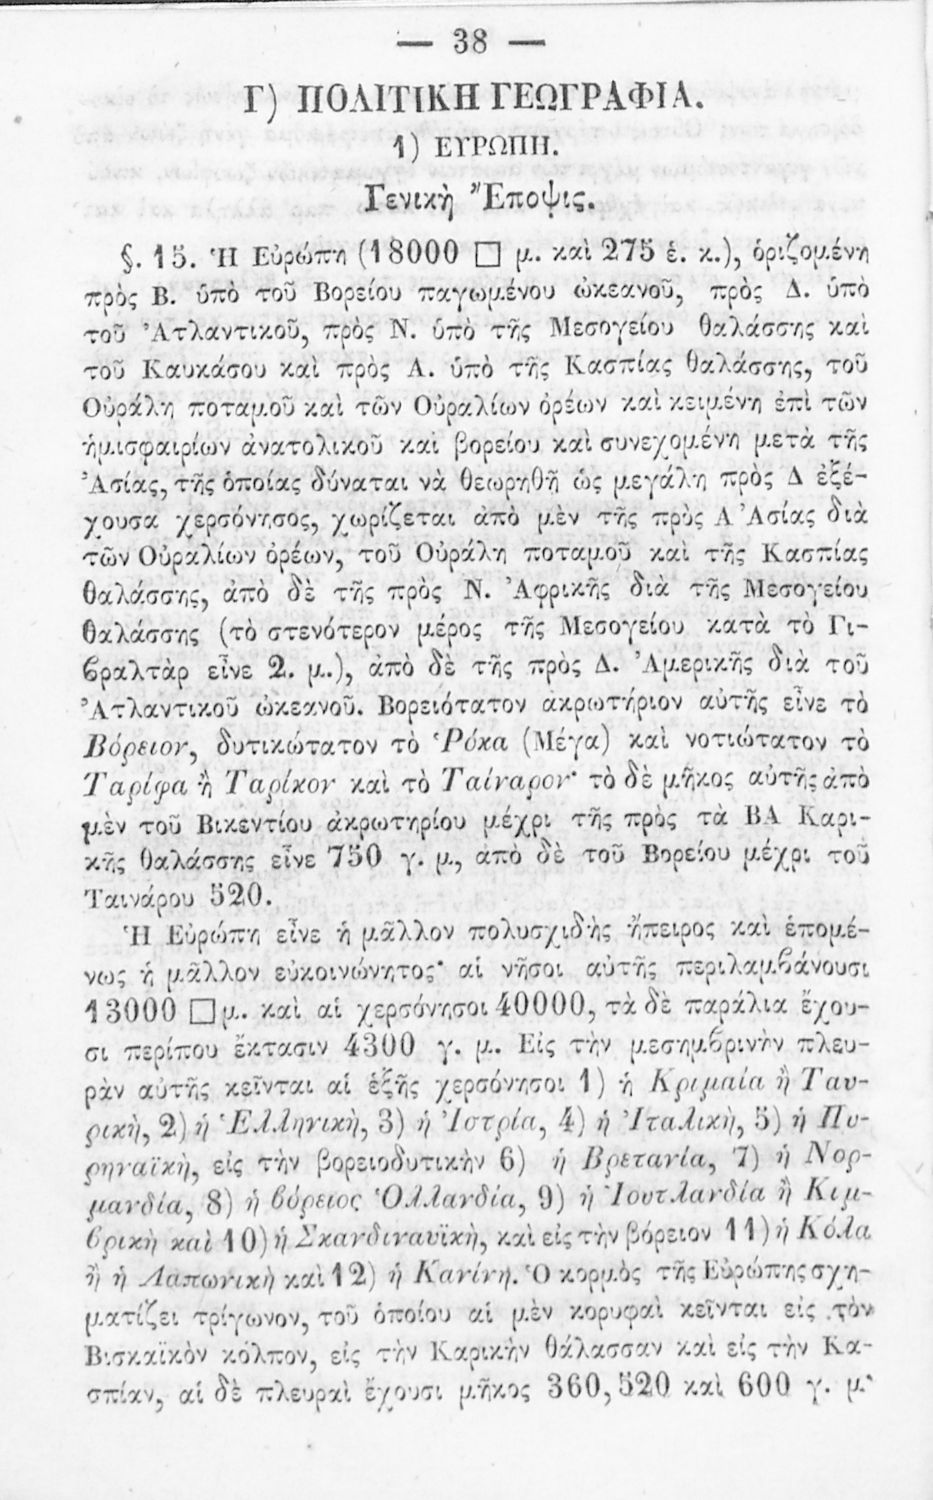 — 38 —
Γ) ΠΟΛΙΤΙΚΗ ΓΕΩΓΡΑΦΙΑ.
1) ΕΥΡΩΠΗ.
Γενικὴ Ἔποψις.
§. 15. Ἡ Εὐρώπη (18000 □ μ. καὶ 275 ἑ. κ.), ὁριζομένη
πρὸς Β. ὑπὸ τοῦ Βορείου παγωμένου ὠκεανοῦ, πρὸς Δ. ὑπὸ
τοῦ Ἀτλαντικοῦ, πρὸς Ν. ὑπὸ τῆς Μεσογείου θαλάσσης καὶ
τοῦ Καυκάσου καὶ πρὸς Α. ὑπὸ τῆς Κασπίας θαλάσσης, τοῦ
Οὐράλη ποταμοῦ καὶ τῶν Οὐραλίων ὀρέων καὶ κειμένη ἐπὶ τῶν
ἡμισφαιρίων ἀνατολικοῦ καὶ βορείου καὶ συνεχομένη μετὰ τῆς
Ἀσίας, τῆς ὁποίας δύναται νὰ θεωρηθῇ ὡς μεγάλη πρὸς Δ ἐξέ-
χουσα χερσόνησος, χωρίζεται ἀπὸ μὲν τῆς πρὸς Α Ἀσίας διὰ
τῶν Οὐραλίων ὀρέων, τοῦ Οὐράλη ποταμοῦ καὶ τῆς Κασπίας
θαλάσσης, ἀπὸ δὲ τῆς πρὸς Ν. Ἀφρικῆς διὰ τῆς Μεσογείου
θαλάσσης (τὸ στενότερον μέρος τῆς Μεσογείου κατὰ τὸ Γι-
βραλτὰρ εἶνε 2. μ.), ἀπὸ δὲ τῆς πρὸς Δ. Ἀμερικῆς διὰ τοῦ
Ἀτλαντικοῦ ὠκεανοῦ. Βορειότατον ἀκρωτήριον αὐτῆς εἶνε τὸ
Βόρειον, δυτικώτατον τὸ Ῥόκα (Μέγα) καὶ νοτιώτατον τὸ
Ταρίφα ἢ Ταρίκον καὶ τὸ Ταίναρον· τὸ δὲ μῆκος αὐτῆς ἀπὸ
μὲν τοῦ Βικεντίου ἀκρωτηρίου μέχρι τῆς πρὸς τὰ ΒΑ Καρι-
κῆς θαλάσσης εἶνε 750 γ. μ, ἀπὸ δὲ τοῦ Βορείου μέχρι τοῦ
Ταινάρου 520.
Ἡ Εὐρώπη εἶνε ἡ μᾶλλον πολυσχιδὴς ἤπειρος καὶ ἑπομέ-
νως ἡ μᾶλλον εὐκοινώνητος· αἱ νῆσοι αὐτῆς περιλαμβάνουσι
13000 □ μ. καὶ αἱ χερσόνησοι 40000, τὰ δὲ παράλια ἔχου-
σι περίπου ἔκτασιν 4300 γ. μ. Εἰς τὴν μεσημβρινὴν πλευ-
ρὰν αὐτῆς κεῖνται αἱ ἑξῆς χερσόνησοι 1) ἡ Κριμαία ἢ Ταυ-
ρικὴ, 2) ἡ Ἑλληνικὴ, 3) ἡ Ἰστρία, 4) ἡ Ἰταλικὴ, 5) ἡ Πυ-
ρηναϊκὴ, εἰς τὴν βορειοδυτικὴν 6) ἡ Βρετανία, 7) ἡ Νορ-
μανδία, 8) ἡ βόρειος Ὁλλανδία, 9) ἡ Ἰουτλανδία ἢ Κιμ-
βρικὴ καὶ 10) ἡ Σκανδιναυϊκὴ, καὶ εἰς τὴν βόρειον 11) ἡ Κόλα
ἢ ἡ Λαπωνικὴ καὶ 12) ἡ Κανίνη. Ὁ κορμὸς τῆς Εὐρώπης σχη-
ματίζει τρίγωνον, τοῦ ὁποίου αἱ μὲν κορυφαὶ κεῖνται εἰς τὸν
Βισκαϊκὸν κόλπον, εἰς τὴν Καρικὴν θάλασσαν καὶ εἰς τὴν Κα-
σπίαν, αἱ δὲ πλευραὶ ἔχουσι μῆκος 360, 520 καὶ 600 γ. μ·